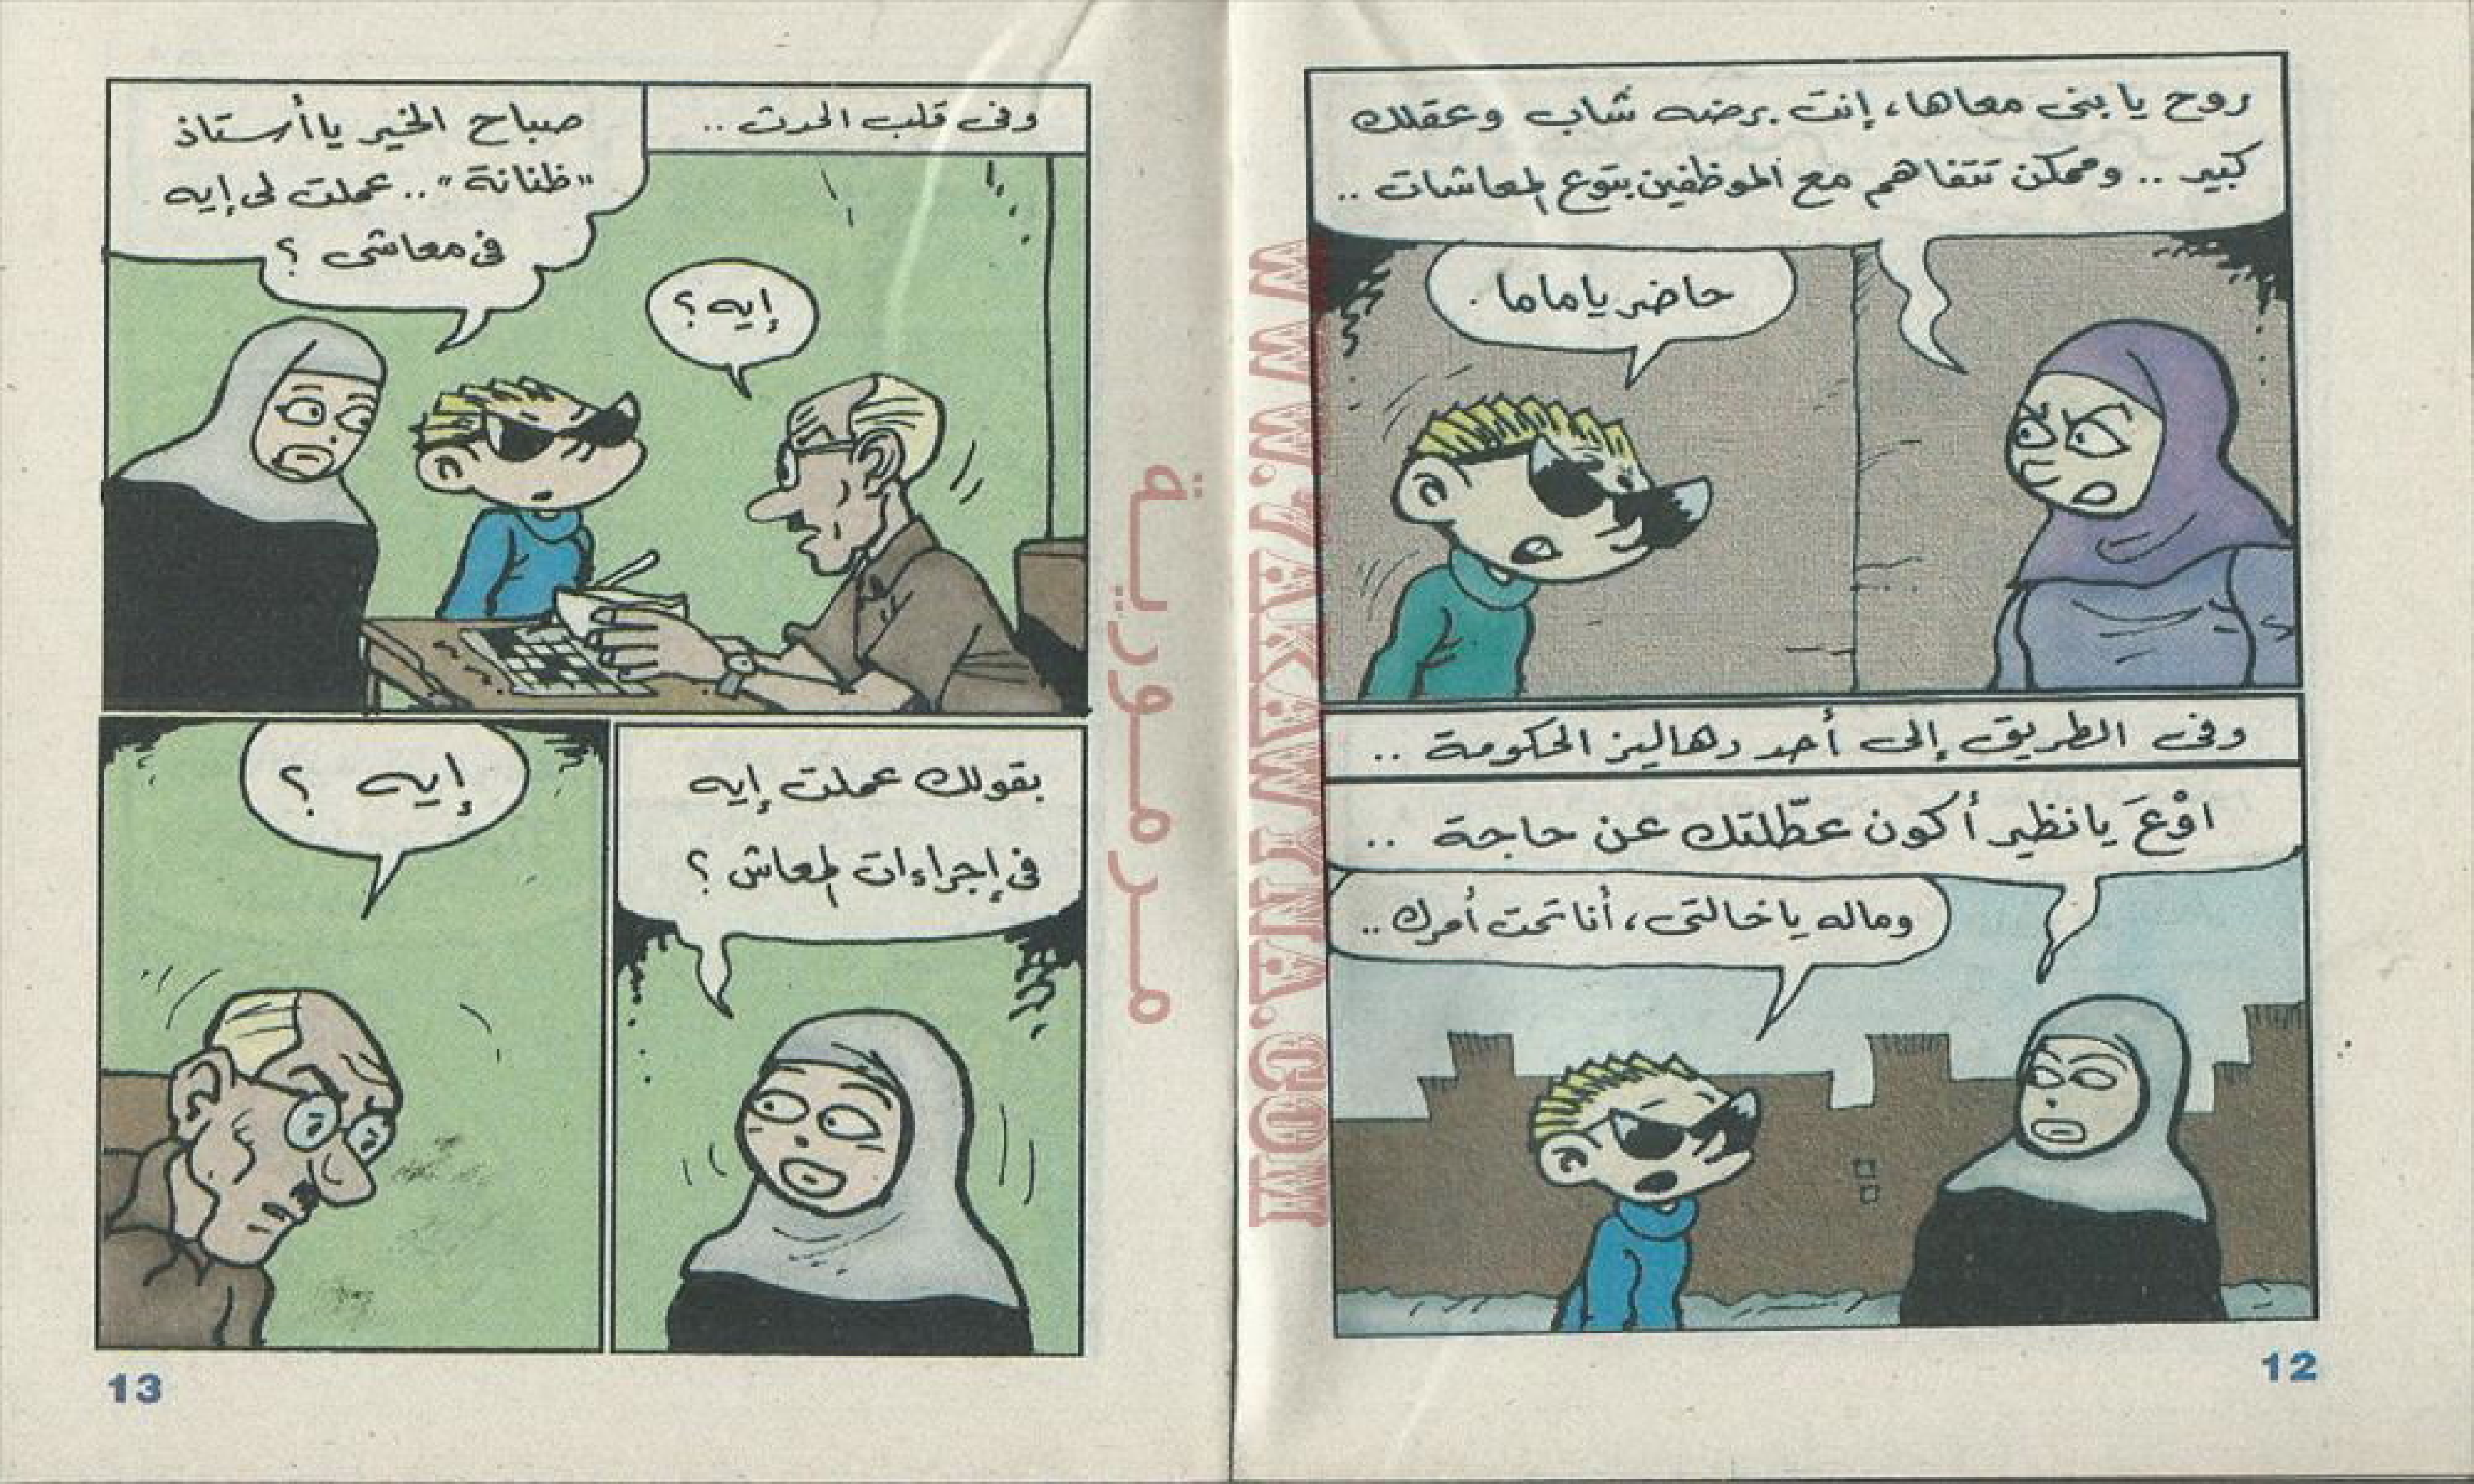 روح يا بنى معاها، إنت برضه شاب وعقلك
كبير .. وممكن تتفاهم مع الموظفين بتوع المعاشات ..
حاضر ياماما .
وفى الطريق إلى أحد دهاليز الحكومة ..
اوْعَ يانظير أكون عطّلتك عن حاجة ..
وماله ياخالتى، أنا تحت أمرك ..
12
وفى قلب الحدث ..
صباح الخير يا أستاذ
"ظنانة" .. عملت لى إيه
فى معاشى ؟
إيه ؟
بقولك عملت إيه
فى إجراءات المعاش ؟
إيه ؟
13
مرمورية
WWW.VAKWAKWYNA.COM